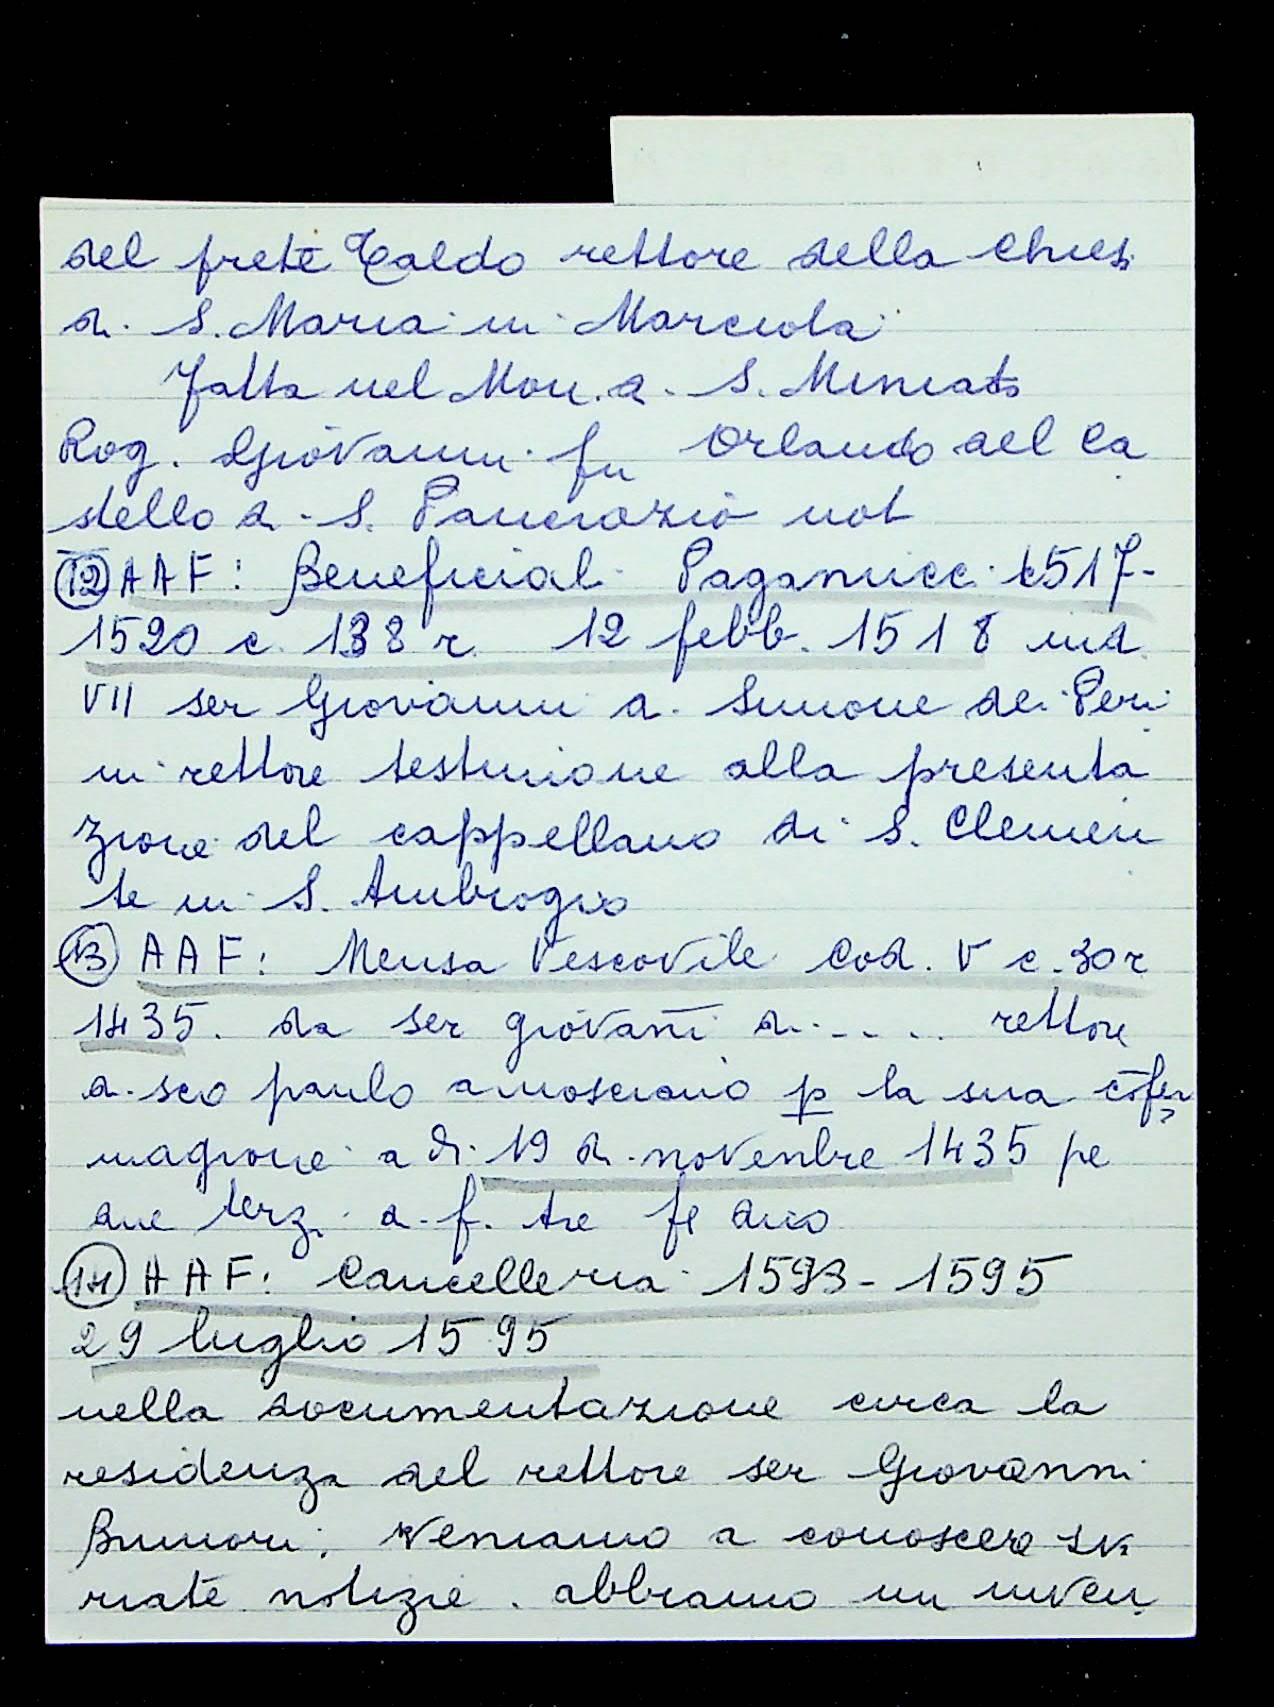 del prete Taldo rettore della chies
di S. Maria in Marciola
Fatta nel Mon. di S. Miniato
Rog. Giovanni fu Orlando del Ca
stello di S. Pancrazio not
12 AAF: Beneficiali Paganucci 1517-
1520 c. 138 r 12 febb. 1518 ind.
VII ser Giovanni di Simone de Peri
ni rettore testimone alla presenta
zione del cappellano di S. Clemen
te in S. Ambrogio
13 AAF: Mensa Vescovile Cod. V c. 30r
1435. da ser giovañi di .... rettore
di sco paulo a mosciano p la sua cōfer
magione a di 19 di novenbre 1435 pe
due terzi di f. tre
14 AAF: Cancelleria 1593-1595
29 luglio 1595
nella documentazione circa la
residenza del rettore ser Giovanni
veniamo a conoscere sva
riate notizie. abbiamo un inven